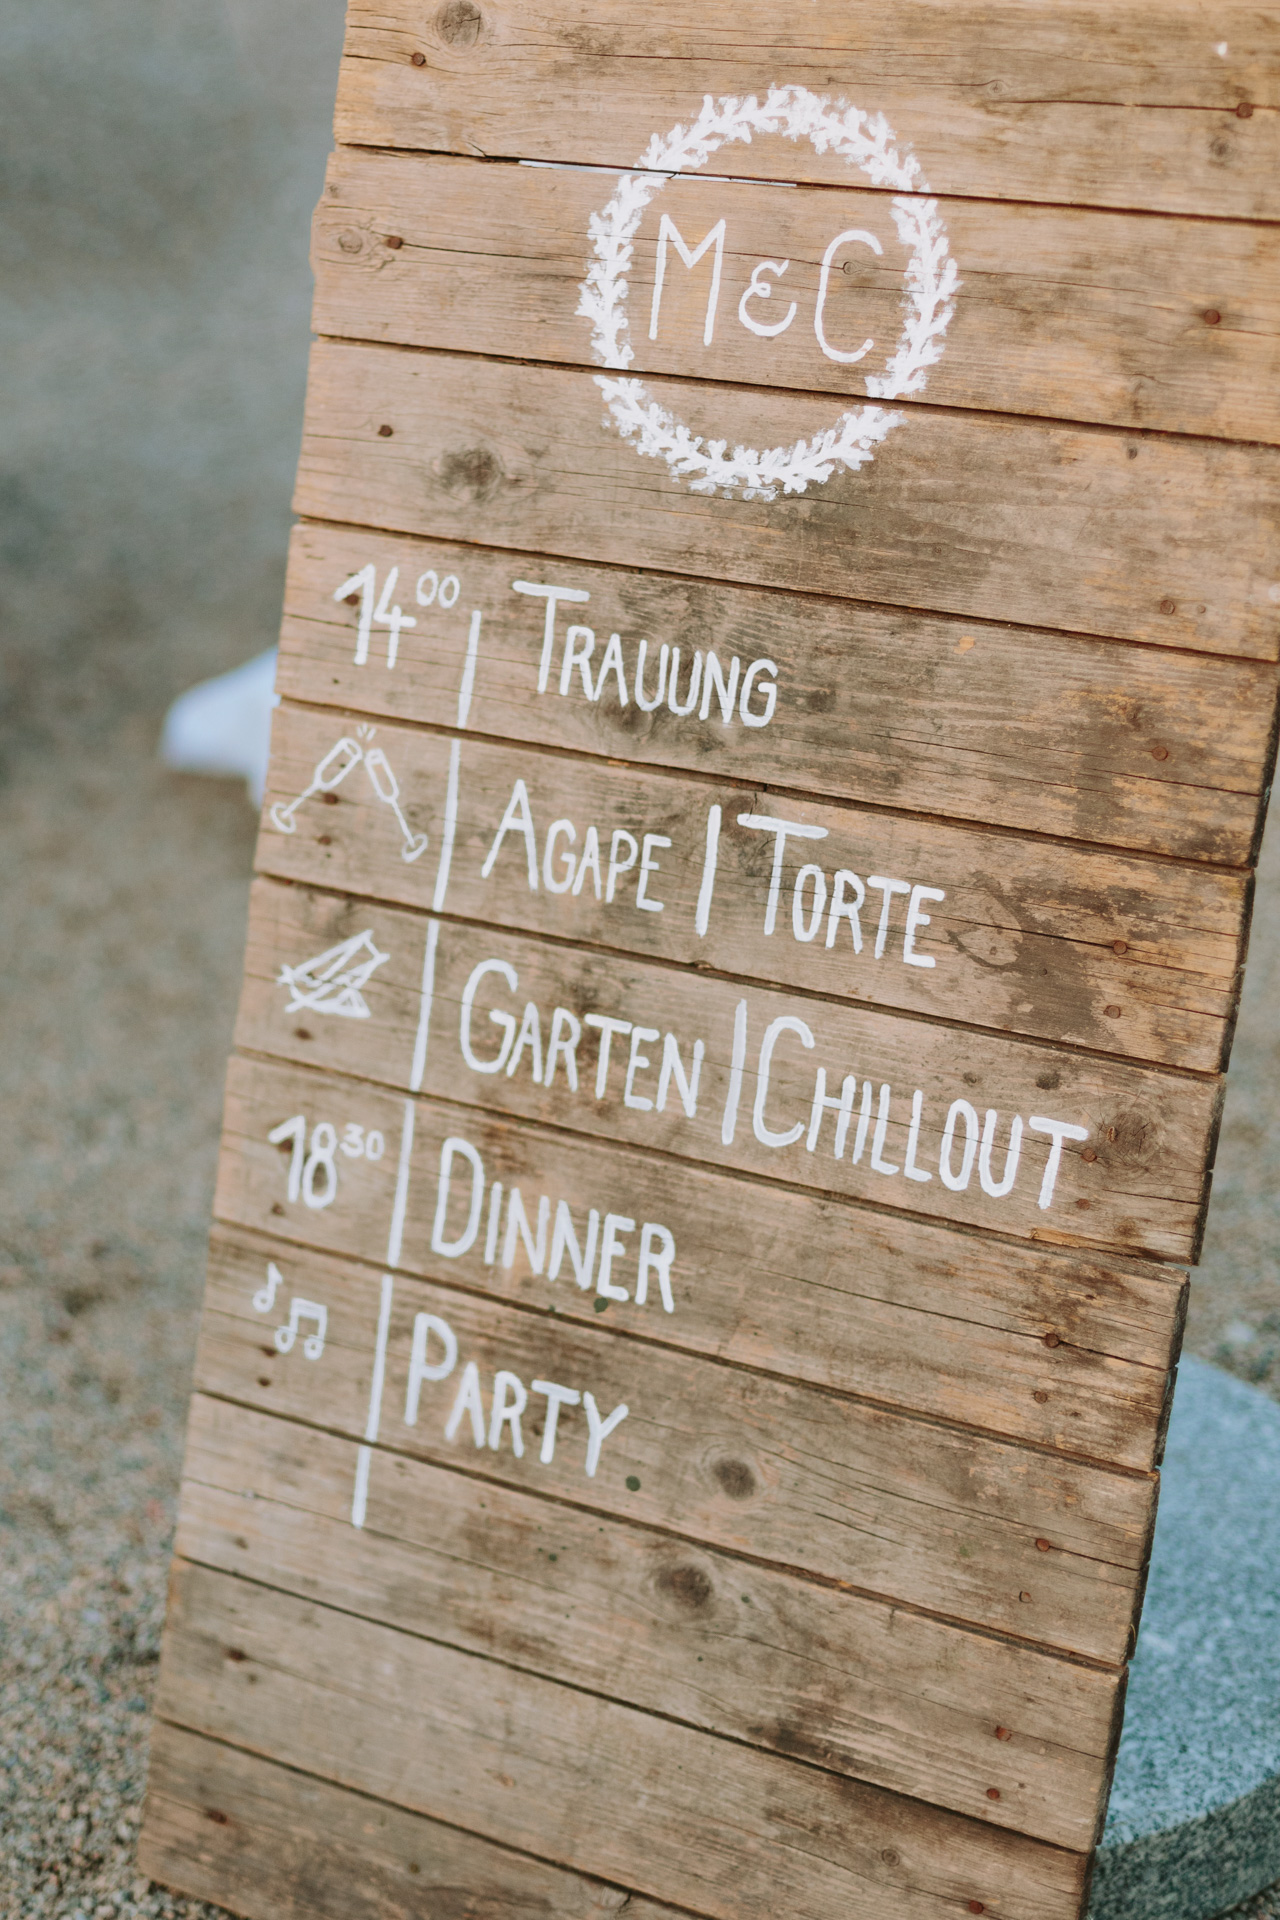 M & C
14⁰⁰ | TRAUUNG
AGAPE | TORTE
GARTEN | CHILLOUT
18³⁰ | DINNER
PARTY